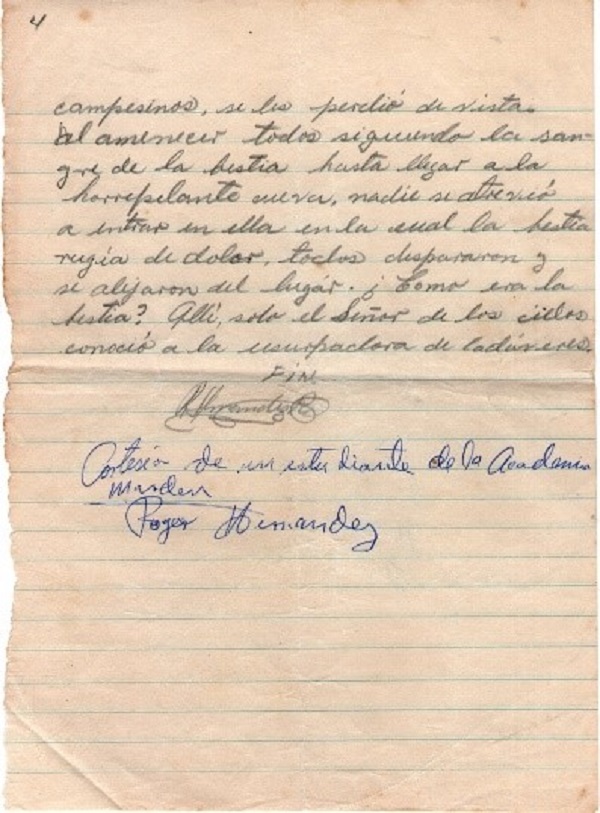 4
campesinos, se les perdió de vista.
al amenecer todos siguiendo la san-
gre de la bestia hasta llegar a la
horrepilante cueva, nadie se atrevió
a entrar en ella en la cual la bestia
rugía de dolor, todos dispararon y
se alejaron del lugar. ¿Como era la
bestia? Allí, solo el Señor de los cielos
conoció a la usurpadora de cadáveres.
FIN
Cortesía de un estudiante de la Academia
Roger Hernandez